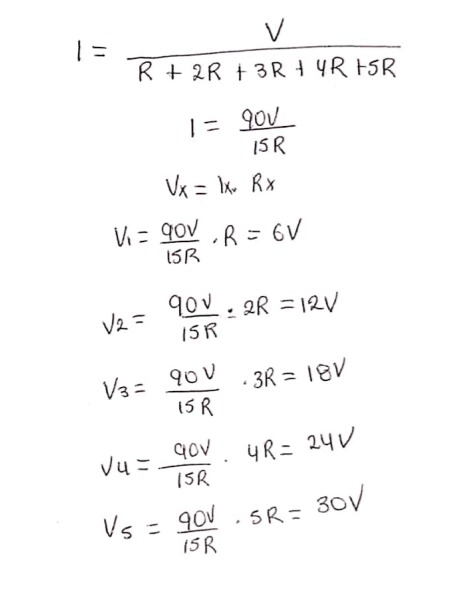 I = V / R + 2R + 3R + 4R + 5R
I = 90V / 15R
Vx = Ix. Rx
V1 = 90V / 15R . R = 6V
V2 = 90V / 15R . 2R = 12V
V3 = 90V / 15R . 3R = 18V
V4 = 90V / 15R . 4R = 24V
V5 = 90V / 15R . 5R = 30V